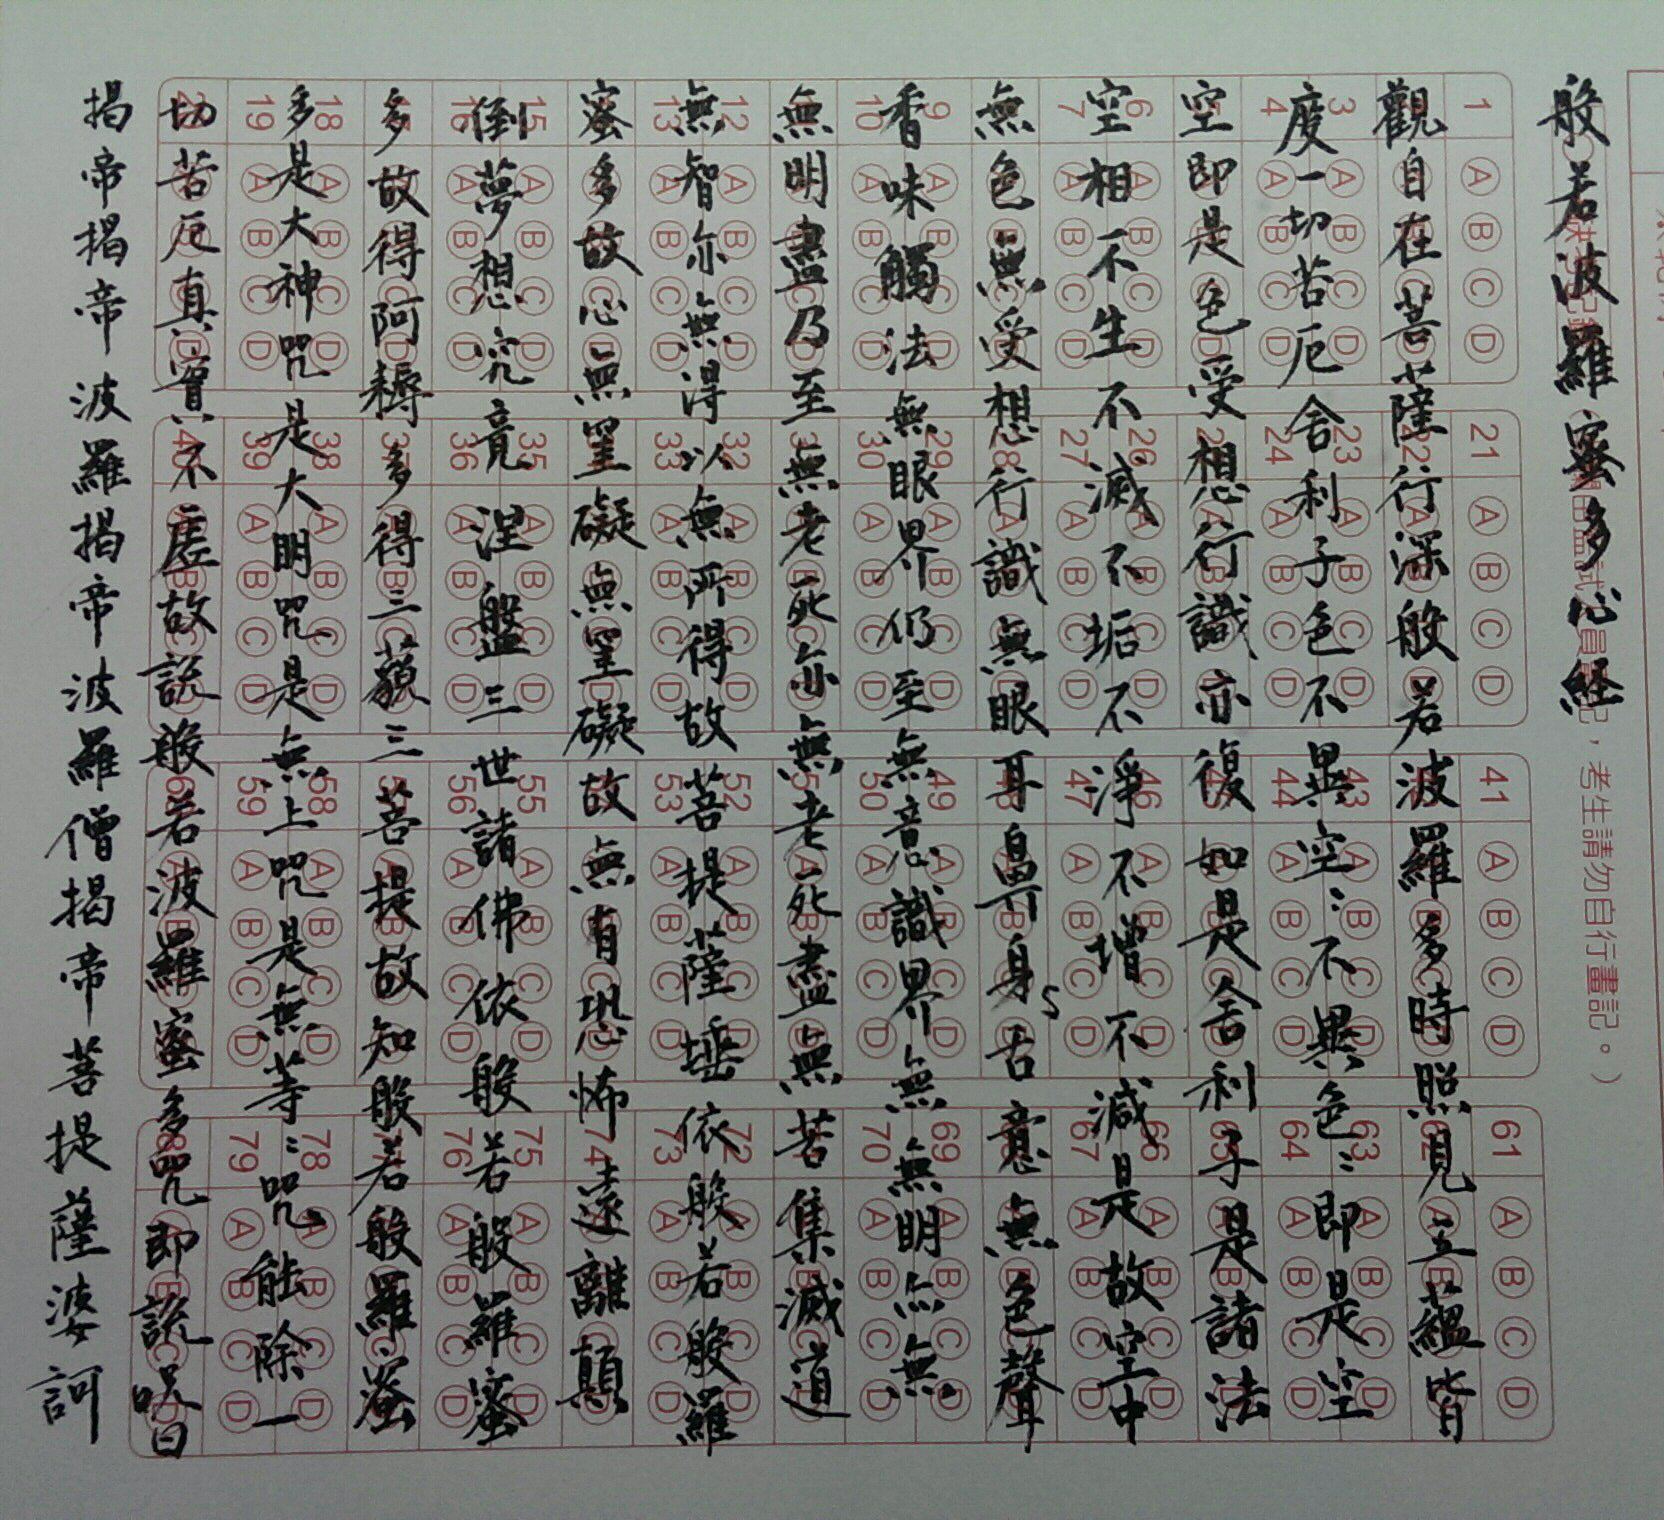 般若波羅蜜多心経
考生請勿自行畫記。）
觀自在菩薩行深般若波羅多時照見五蘊皆
度一切苦厄舍利子色不異空〻不異色〻即是空
空即是色受想行識亦復如是舍利子是諸法
空相不生不滅不垢不淨不增不減是故空中
無色無受想行識無眼耳鼻身舌意無色聲
香味觸法無眼界仍至無意識界無無明亦無
無明盡乃至無老死亦無老死盡無苦集滅道
無智亦無得以無所得故菩提薩埵依般若般羅
蜜多故心無罣礙無罣礙故無有恐怖遠離顛
倒夢想究竟涅盤三世諸佛依般若般羅蜜
多故得阿耨多得三藐三菩提故知般若般羅蜜
多是大神咒是大明咒是無上咒是無等〻咒能除一
切苦厄真實不虛故說般若波羅蜜多咒即說呪曰
揭帝揭帝波羅揭帝波羅僧揭帝菩提薩婆訶